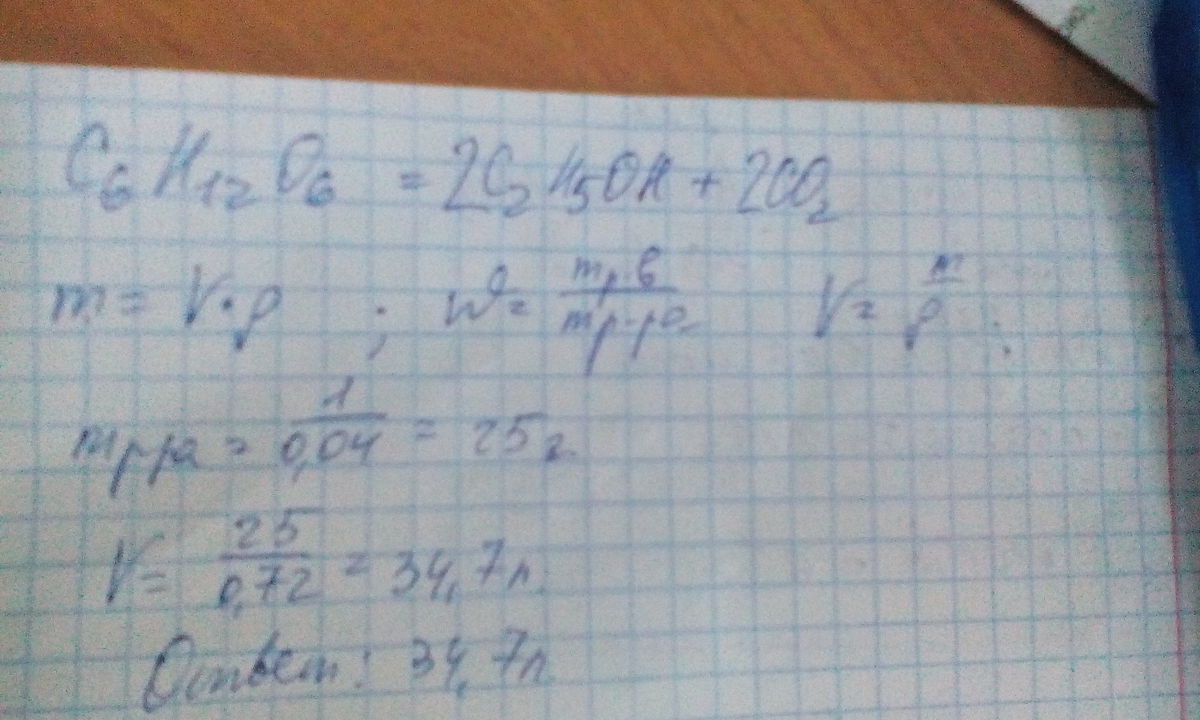 C₆H₁₂O₆ = 2C₂H₅OH + 2CO₂
m = V·ρ ; W = mр.в/mр-ра V = m/ρ ;
mр-ра = 1/0,04 = 25г.
V = 25/0,72 = 34,7л
Ответ: 34,7л